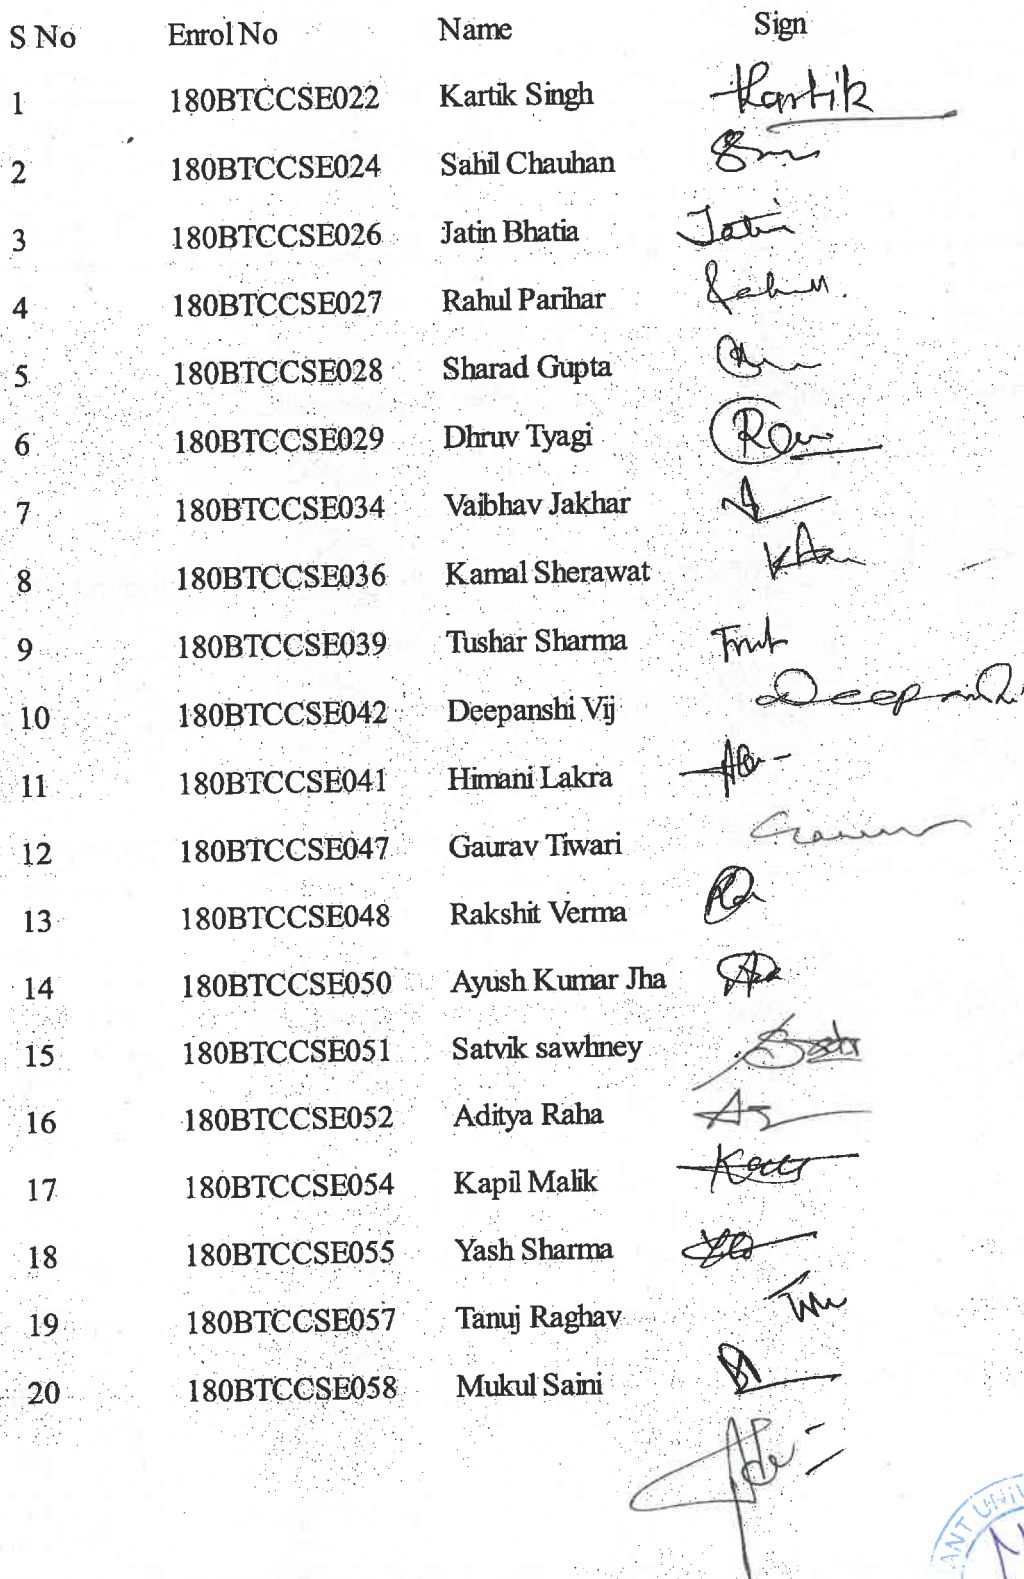 S No Enrol No Name Sign
1 180BTCCSE022 Kartik Singh Kartik
2 180BTCCSE024 Sahil Chauhan
3 180BTCCSE026 Jatin Bhatia Jatin
4 180BTCCSE027 Rahul Parihar Rahul.
5 180BTCCSE028 Sharad Gupta
6 180BTCCSE029 Dhruv Tyagi
7 180BTCCSE034 Vaibhav Jakhar
8 180BTCCSE036 Kamal Sherawat
9 180BTCCSE039 Tushar Sharma
10 180BTCCSE042 Deepanshi Vij Deepanshi
11 180BTCCSE041 Himani Lakra
12 180BTCCSE047 Gaurav Tiwari
13 180BTCCSE048 Rakshit Verma
14 180BTCCSE050 Ayush Kumar Jha
15 180BTCCSE051 Satvik sawhney
16 180BTCCSE052 Aditya Raha
17 180BTCCSE054 Kapil Malik
18 180BTCCSE055 Yash Sharma
19 180BTCCSE057 Tanuj Raghav
20 180BTCCSE058 Mukul Saini
ANT UNI